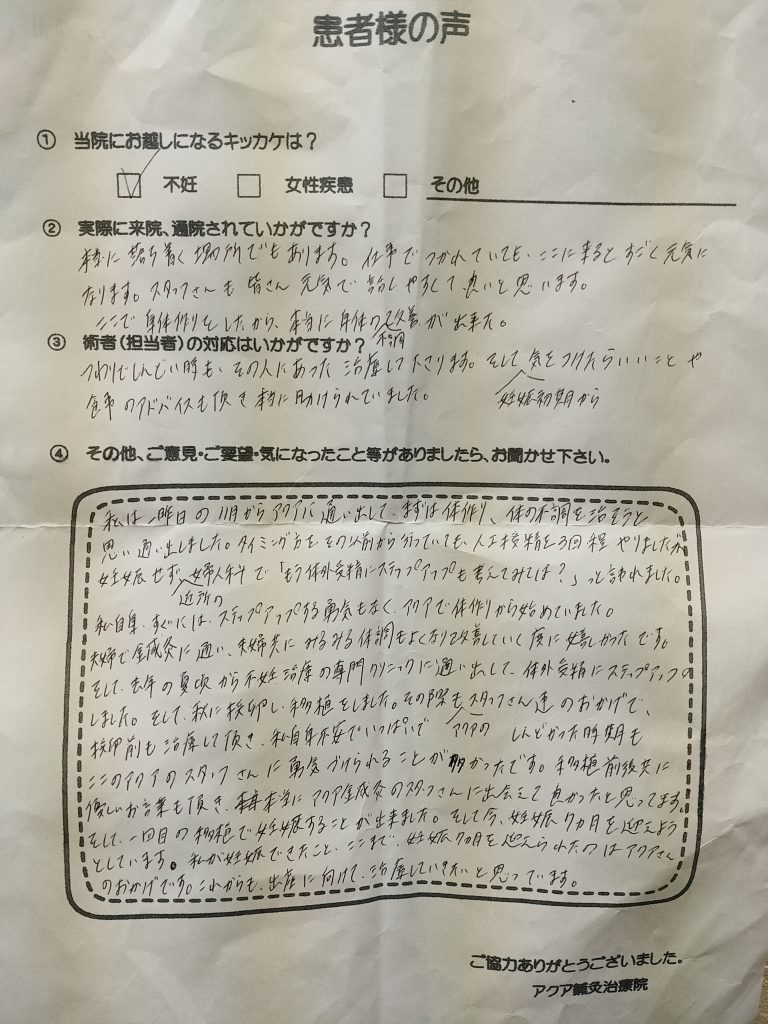 患者様の声
① 当院にお越しになるキッカケは？
不妊 女性疾患 その他
② 実際に来院、通院されていかがですか？
本当に落ち着く場所でもあります。仕事でつかれていても、ここに来るとすごく元気に
なります。スタッフさんも皆さん元気で話しやすくて良いと思います。
ここで身体作りをしたから、本当に身体の改善が出来た。
③ 術者（担当者）の対応はいかがですか？
つわりでしんどい時も、その人にあった治療して下さります。そして気をつけたらいいことや
妊娠初期から
食事のアドバイスも頂き本当に助けられていました。
④ その他、ご意見・ご要望・気になったこと等がありましたら、お聞かせ下さい。
私は一昨日の11月からアクアに通い出して、まずは体作り、体の不調を治そうと
思い通い出しました。タイミング方をその以前から行っていても、人工授精を3回程やりましたが
妊娠せず、近所の婦人科で「もう体外受精にステップアップも考えてみては？」っと言われました。
私自身、すぐには、ステップアップする勇気もなく、アクアで体作りから始めていました。
夫婦で金咸灸に通い、夫婦共にみるみる体調もよくなり改善していく度に嬉しかったです。
そして、去年の夏頃から不妊治療の専門クリニックに通い出して、体外受精にステップアップの
しました。そして、秋に採卵し、移植をしました。その際もアクアのスタッフさん達のおかげで、
採卵前も治療して頂き、私自身不安でいっぱいで しんどかった時期も
ここのアクアのスタッフさんに勇気づけられることが多かったです。移植前後共に
優しいお言葉も頂き、本当にアクア金咸灸のスタッフさんに出会えて良かったと思ってます。
そして、一回目の移植で妊娠することが出来ました。そして今、妊娠7ヵ月を迎えよう
としています。私が妊娠できたこと、ここまで、妊娠7ヵ月を迎えられたのはアクアさん
のおかげです。これからも、出産に向けて、治療していきたいと思っています。
ご協力ありがとうございました。
アクア鍼灸治療院